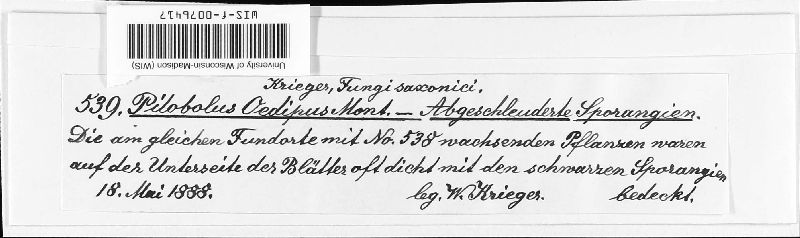 WIS-f-0079417
University of Wisconsin-Madison (WIS)
Krieger, Fungi saxonici.
539. Pilobolus Oedipus Mont. — Abgeschleuderte Sporangien.
Die am gleichen Fundorte mit No. 538 wachsenden Pflanzen waren
auf der Unterseite der Blätter oft dicht mit den schwarzen Sporangien
18. Mai 1888. leg. W. Krieger. bedeckt.